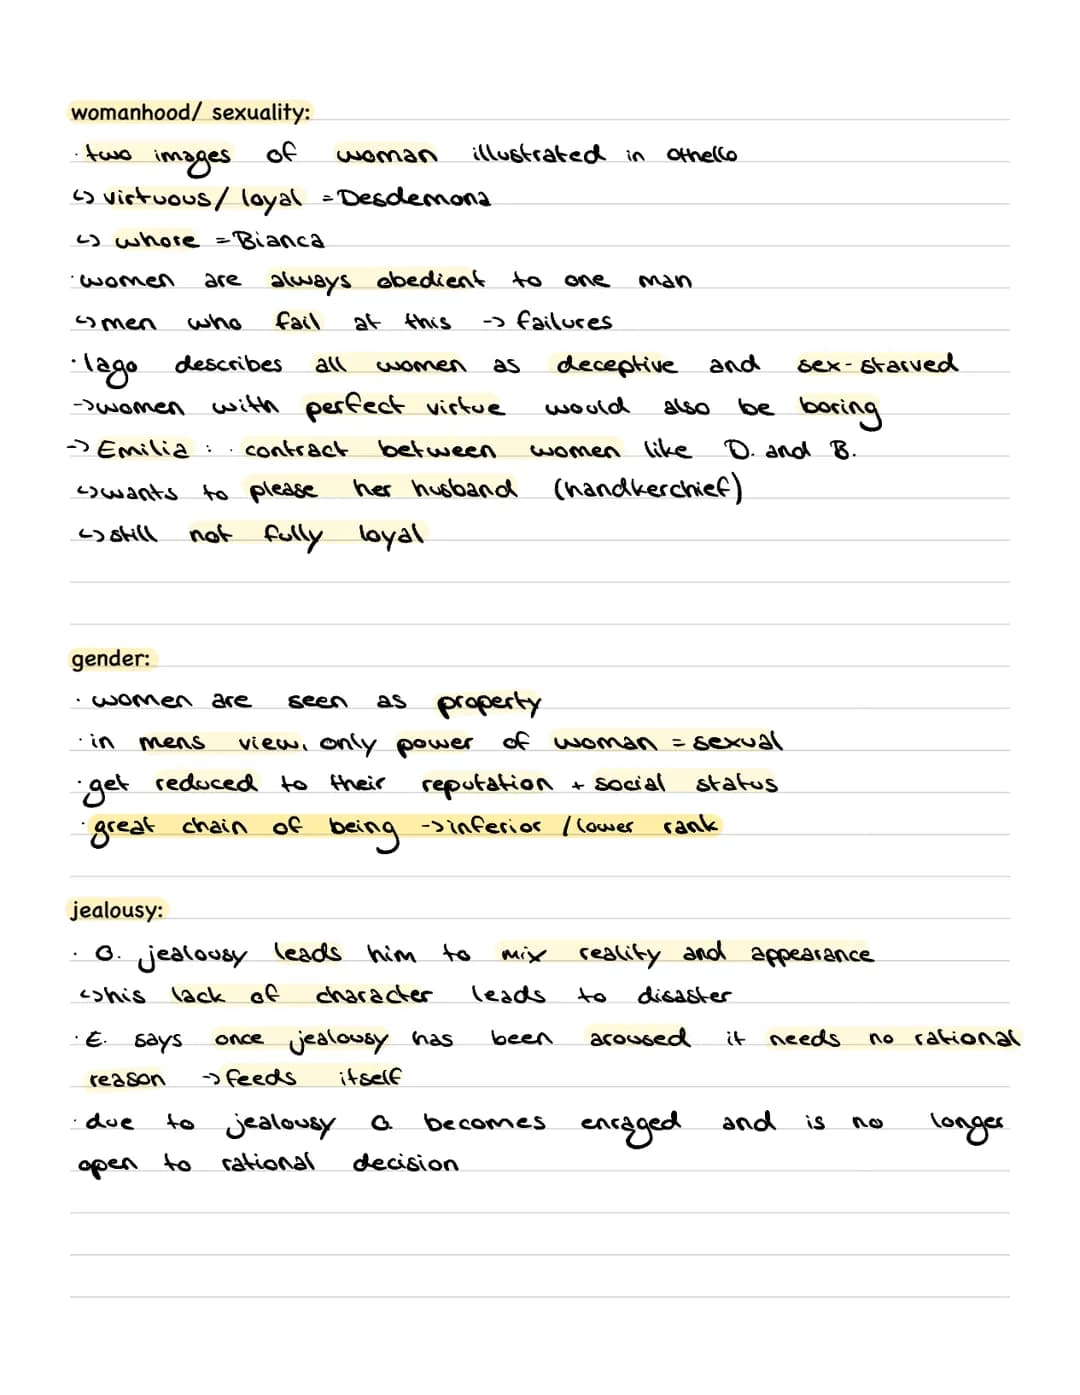 womanhood/ sexuality:
· two images of woman illustrated in Othello
↳ virtuous/ loyal = Desdemona
↳ whore = Bianca
· women are always obedient to one man
↳ men who fail at this -> failures
· Iago describes all women as deceptive and sex-starved
-> women with perfect virtue would also be boring
-> Emilia : · contract between women like D. and B.
↳ wants to please her husband (handkerchief)
↳ still not fully loyal
gender:
· women are seen as property
· in mens view, only power of woman = sexual
· get reduced to their reputation + social status
· great chain of being -> inferior / lower rank
jealousy:
· O. jealousy leads him to mix reality and appearance
↳ his lack of character leads to disaster
· E. says once jealousy has been aroused it needs no rational
reason -> feeds itself
· due to jealousy O becomes enraged and is no longer
open to rational decision